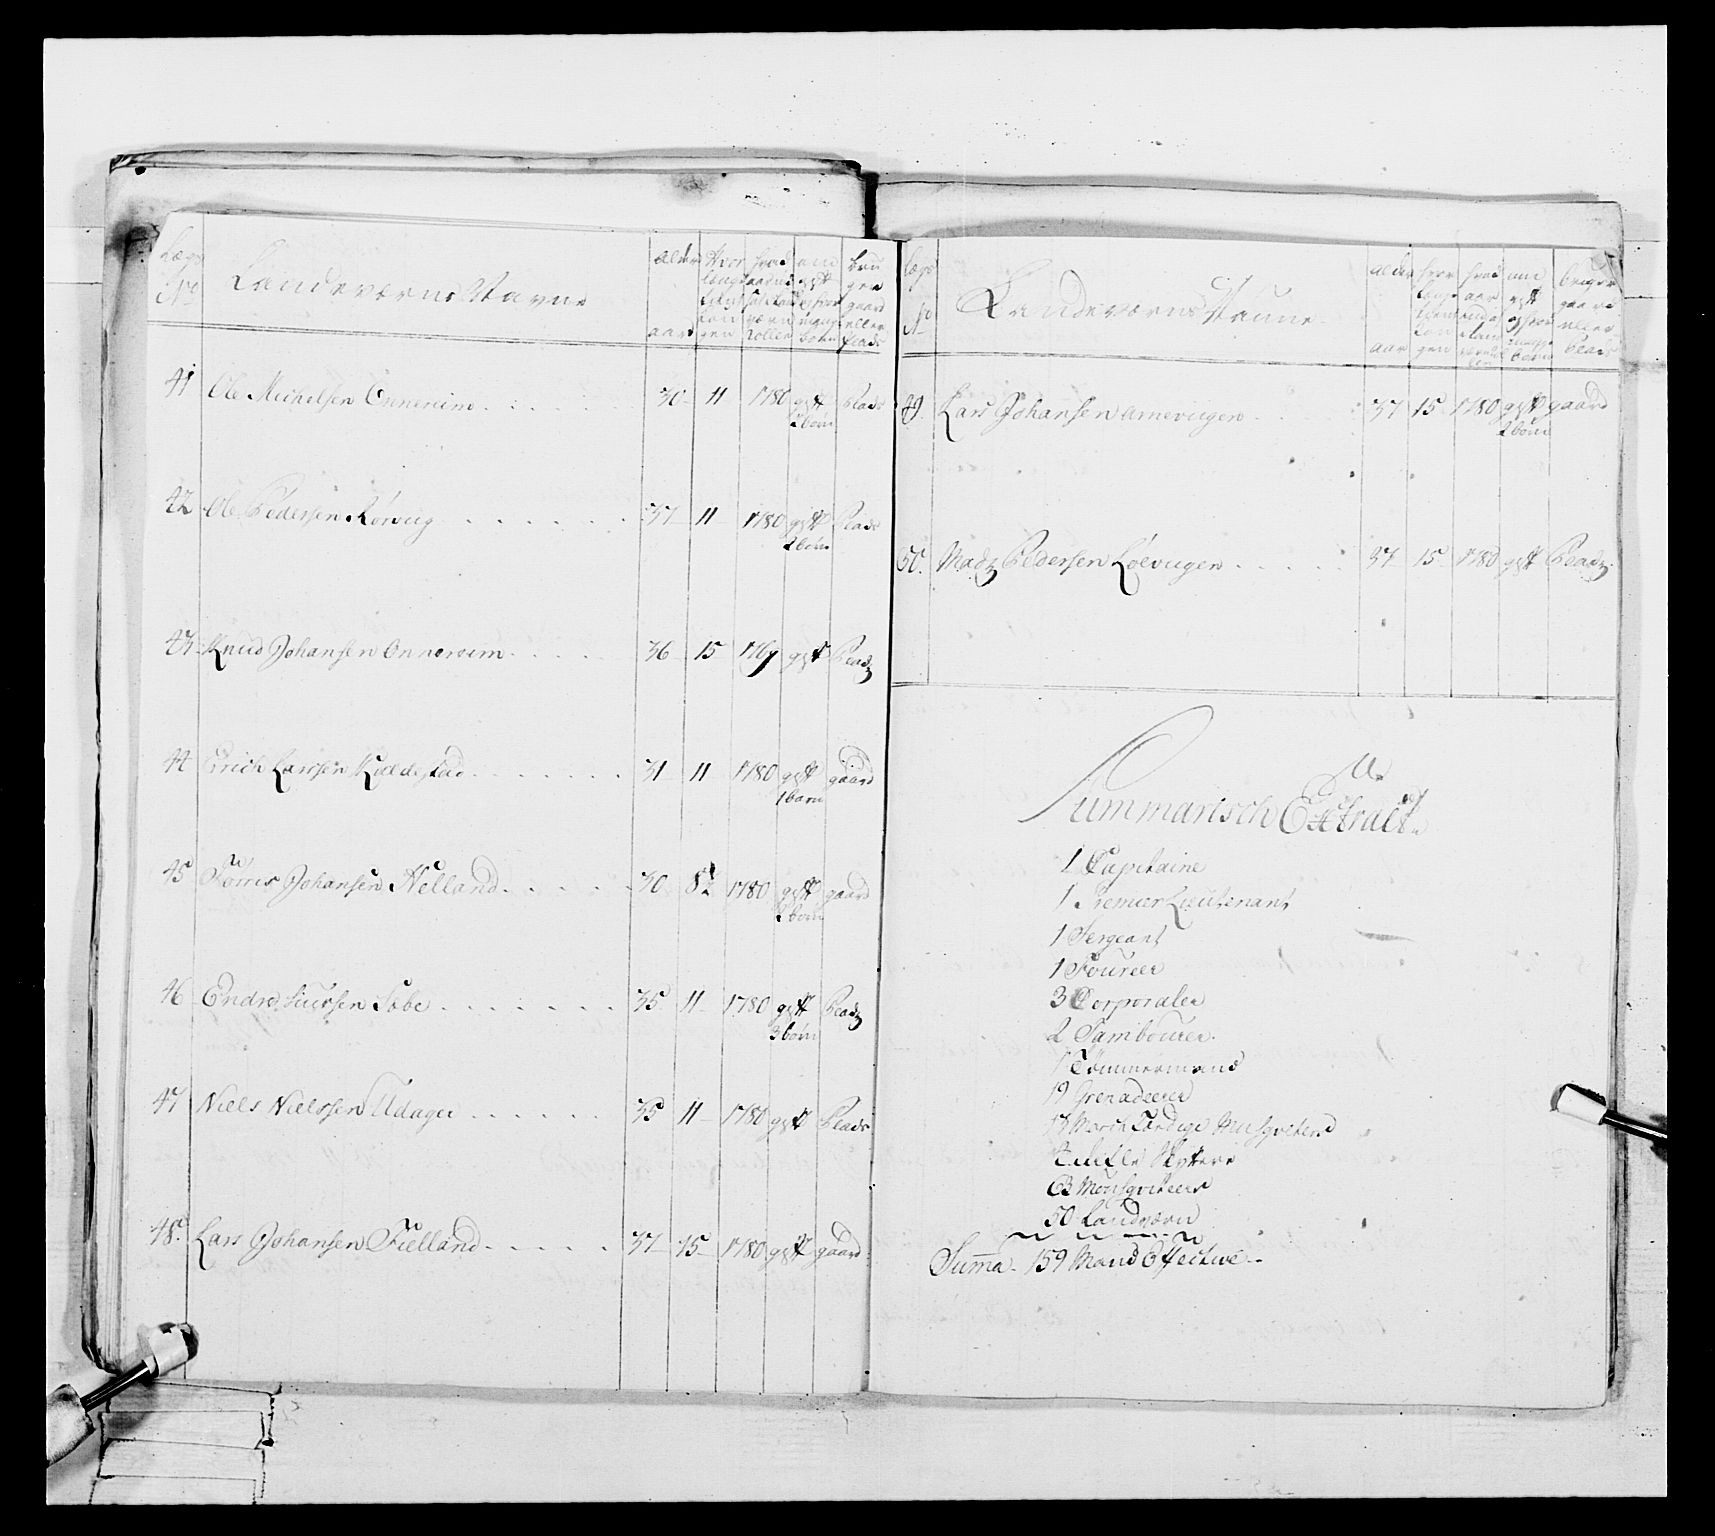 Lægs No
Landeværns Navne
alder aar
Hvor længe tient kongen
hvad aar ud sat Landeværn Rollen
om gift og hvor mange børn
bruger gaard eller Plads
41 Ole Michelsen Onnereim 30 11 1780 gift 2 børn Plads
42 Ole Pedersen Rørvig 37 11 1780 gift 2 børn Plads
43 Knud Johansen Onnereim 36 15 1769 gift Plads
44 Erich Larsen Kaldestad 31 11 1780 gift 1 barn gaard
45 Tørris Johansen Nelland 30 8½ 1780 gift 2 børn gaard
46 Endre Siursen Søbe 35 11 1780 gift 3 børn Plads
47 Niels Nielssen Udager 35 11 1780 gift Plads
48 Lars Johansen Fielland 37 15 1780 gift gaard
Lægs No
Landeværns Naune
alder aar
hvor længe tient kongen
hvad aar
om gift og hvor mange børn
bruger gaard eller Plads
49. Lars Johansen Arnevigen 37 15 1780 gift 2 børn gaard
50. Mads Pedersen Løevigen 37 15 1780 gift Plads
Summarisch Extract
1 Capitaine
1 Premier Lieutenant
1 Sergeant
1 Foureer
3 Corporaler
2 Tambourer
1 Tømmermand
19 Grenadeerer
13 March Færdige Musqveterer
4 Rifle Skyttere
63 Mousqveteerer
50 Landværn
Summa 159 Mand Effective